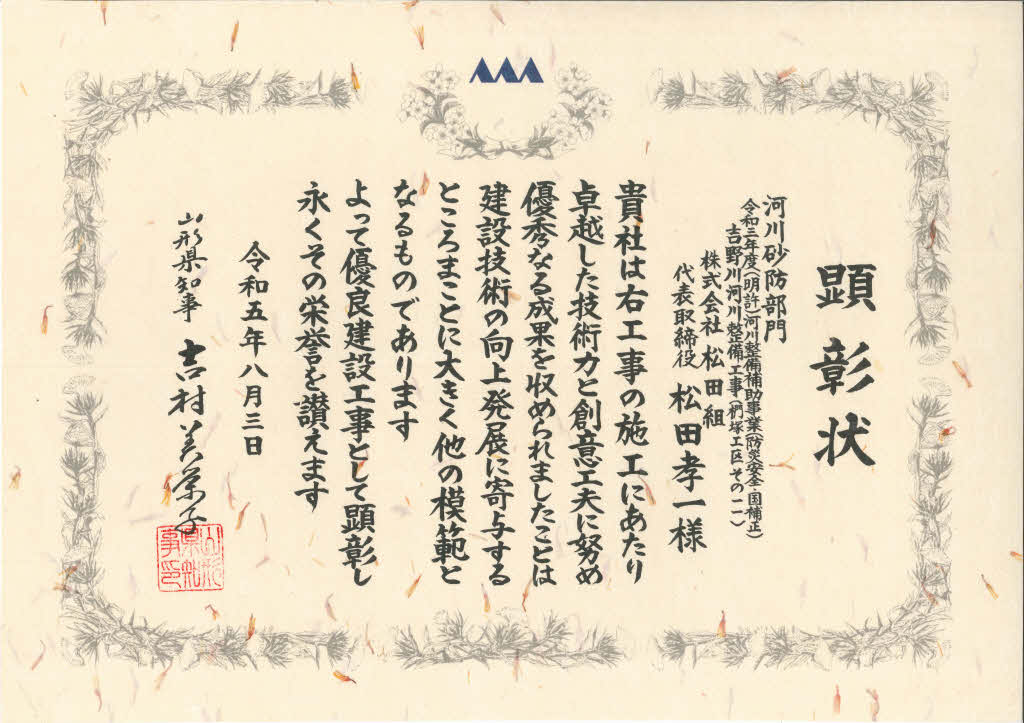 顕彰状
河川砂防部門
令和三年度(明許)河川整備補助事業(防災安全・国補正)
吉野川河川整備工事(椚塚工区その一一)
株式会社 松田組
代表取締役 松田孝一様
貴社は右工事の施工にあたり
卓越した技術力と創意工夫に努め
優秀なる成果を収められましたことは
建設技術の向上発展に寄与する
ところまことに大きく他の模範と
なるものであります
よって優良建設工事として顕彰し
永くその栄誉を讃えます
令和五年八月三日
山形県知事 吉村美栄子
山形
県知
事印